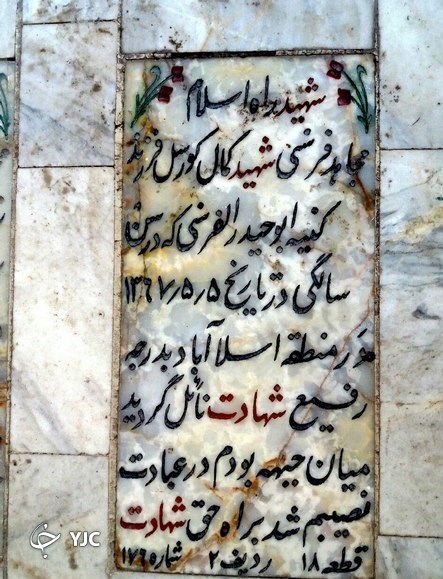 شهید براه اسلام
مجاهد فرنسی شهید کمال کورسل فرزند
کنیه ابوحیدر الفرنسی که در سن
سالگی در تاریخ ۱۳۶۷/۵/۵
در منطقه اسلام‌آباد بدرجه
رفیع شهادت نائل گردید
میان جبهه بودم در عبادت
نصیبم شد براه حق شهادت
قطعه ۱۸ ردیف ۲ شماره ۱۷۶
YJC